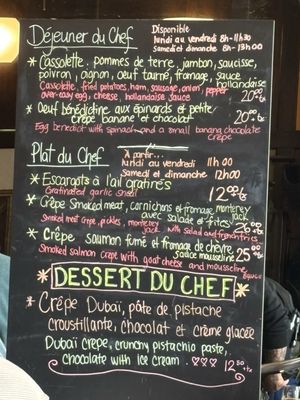 Déjeuner du Chef
Disponible
lundi au vendredi 8h-11h30
Samedi et dimanche 8h-13h00
* Cassolette, pommes de terre, jambon, saucisse,
poivron, oignon, oeuf tourné, fromage, sauce
hollandaise
Cassolette, fried potatoes, ham, sausage, onion, pepper
over-easy egg, cheese, hollandaise sauce
20.00 +tx
* Oeuf bénédictine aux épinards et petite
crêpe banane et chocolat
20.00 +tx
Egg benedict with spinach and a small banana chocolate
crêpe
Plat du Chef
À partir...
lundi au vendredi 11h00
Samedi et dimanche 12h00
* Escargots à l'ail gratinés
Gratinated garlic snail
12.00 +tx
* Crêpe Smoked meat, cornichons et fromage monterey
jack
avec salade et frites
Smoked meat crepe, pickles, monterey
jack with salad and french fries
26.00 +tx
* Crêpe saumon fumé et fromage de chèvre,
sauce mousseline
Smoked salmon crepe with goat cheese and mousseline
sauce
25.00 +tx
*DESSERT DU CHEF*
* Crêpe Dubaï, pâte de pistache
croustillante, chocolat et crème glacée
Dubaï crepe, crunchy pistachio paste,
chocolate with ice cream. ♡♡♡ 12.50 +tx